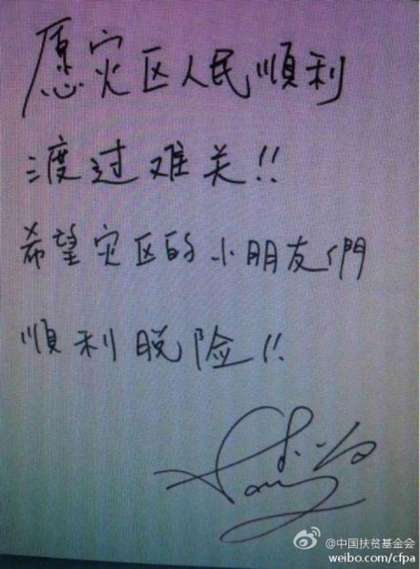 愿灾区人民順利
渡过难关!!
希望灾区的小朋友們
順利脱险!!
@中国扶贫基金会
weibo.com/cfpa